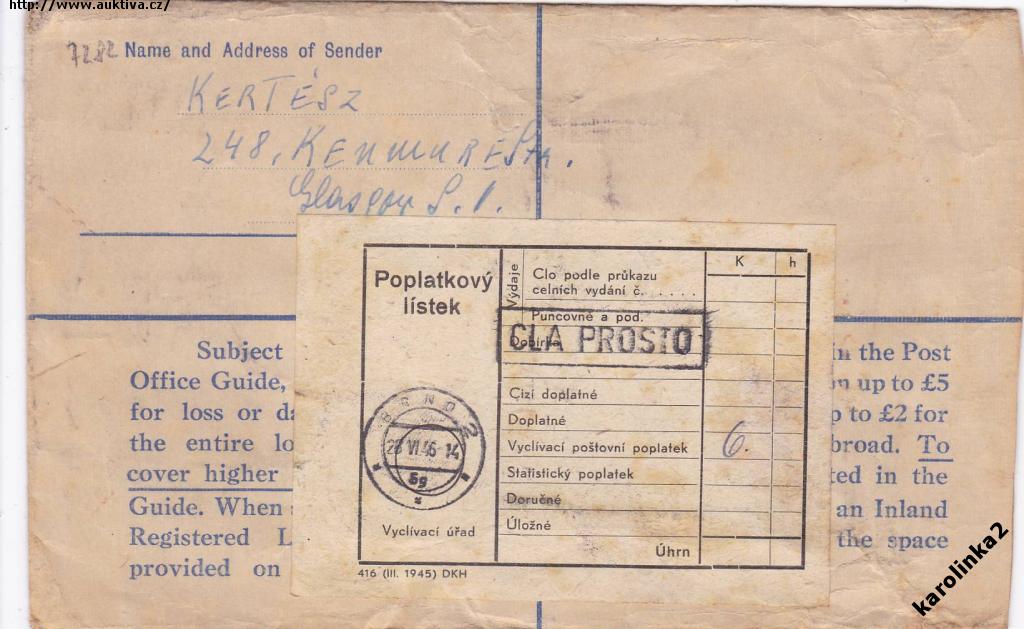 http://www.auktiva.cz/
7282 Name and Address of Sender
KERTÉSZ
248, KENMURE Str.
Glasgow S. 1.
Subject
Office Guide,
for loss or da
the entire lo
cover higher
Guide. When
Registered L
provided on
in the Post
on up to £5
p to £2 for
broad. To
ted in the
an Inland
the space
Poplatkový
lístek
Výdaje
Clo podle průkazu
celních vydání č. . . . .
Puncovné a pod.
Dobírka
CLA PROSTO
Cizí doplatné
Doplatné
Vyclívací poštovní poplatek 6.
Statistický poplatek
Doručné
Úložné
Úhrn
K h
BRNO 2
28 VI 46 - 14
5g
Vyclívací úřad
416 (III. 1945) DKH
karolinka2